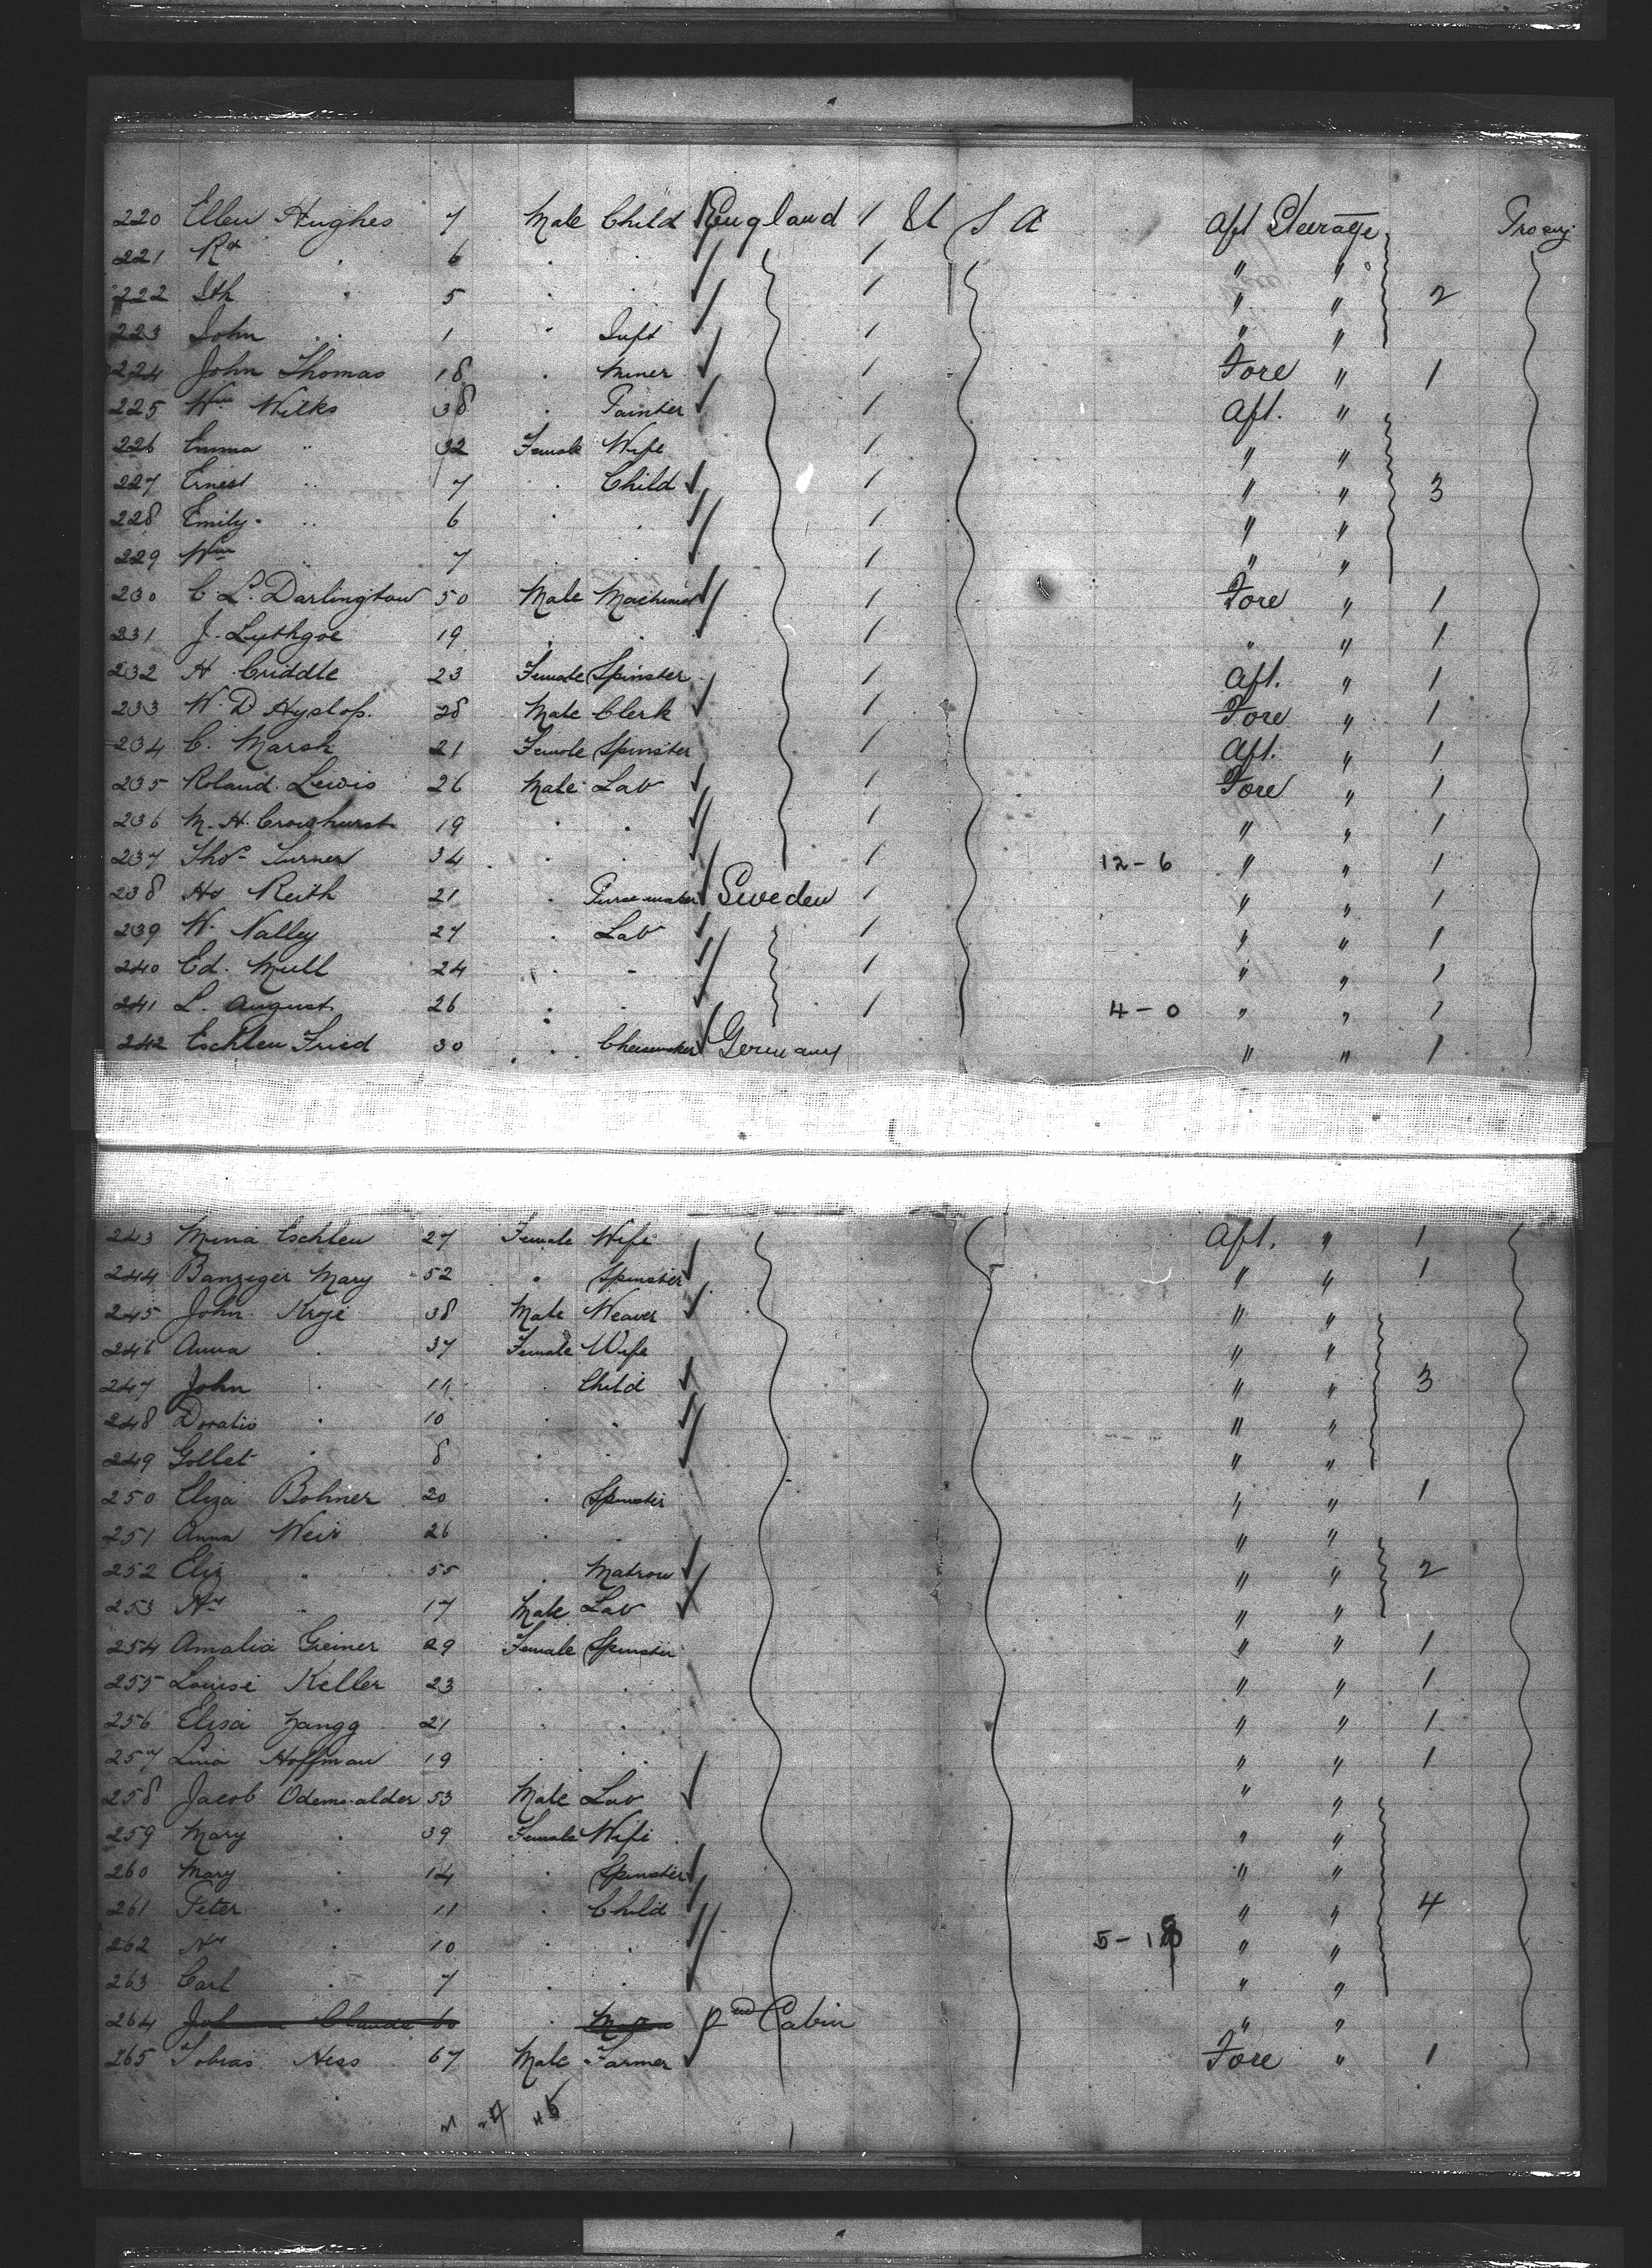 220 Ellen Hughes 7 Male Child England 1 U S A Aft Steerage
221 Rd " 6 " " 1 " "
222 " 5 " " 1 " " 2
223 John " 1 " Inft 1 " "
224 John Thomas 18 " Miner 1 Fore " 1
225 Wm Wilks 38 " Painter 1 Aft. "
226 Emma " 32 Female Wife 1 " "
227 Ernest " 7 " Child 1 " " 3
228 Emily " 6 " " 1 " "
229 Wm " 7 " " 1 " "
230 C. L. Darlington 50 Male Machinist 1 Fore " 1
231 J. Lythgoe 19 " " 1 " " 1
232 H. Criddle 23 Female Spinster 1 Aft. " 1
233 W. D Hyslop. 28 Male Clerk 1 Fore " 1
234 C. Marsh 21 Female Spinster 1 Aft. " 1
235 Roland Lewis 26 Male Lab 1 Fore " 1
236 M. H. Crowhurst 19 " " 1 " " 1
237 Thos Turner 34 " " 1 12-6 " " 1
238 Hy Reith 21 " Purse maker Sweden 1 " " 1
239 W. Nalley 27 " Lab 1 " " 1
240 Ed. Mull 24 " " 1 " " 1
241 L. August 26 " " 1 4-0 " " 1
242 Eschleu Fried 30 " Cheesemaker Germany " " 1
243 Mina Eschleu 27 Female Wife Aft. " 1
244 Banziger Mary 52 " Spinster " " 1
245 John Kroje 38 Male Weaver " "
246 Anna " 37 Female Wife " "
247 John " 11 " Child " " 3
248 Doratio " 10 " " " "
249 Golbet " 8 " " " "
250 Eliza Bohner 20 " Spinster " " 1
251 Anna Weir 26 " " " "
252 Eliz " 55 " Matron " " 2
253 Hy " 17 Male Lab " "
254 Amalia Greiner 29 Female Spinster " " 1
255 Louise Keller 23 " " " " 1
256 Elisa Zangg 21 " " " " 1
257 Lina Hoffman 19 " " " " 1
258 Jacob Odemwalder 53 Male Lab " "
259 Mary " 39 Female Wife " "
260 Mary " 14 " Spinster " "
261 Peter " 11 " Child " " 4
262 Hy " 10 " " 5-18 " "
263 Carl " 7 " " " "
264 2nd Cabin " "
265 Tobias Hess 67 Male Farmer Fore " 1